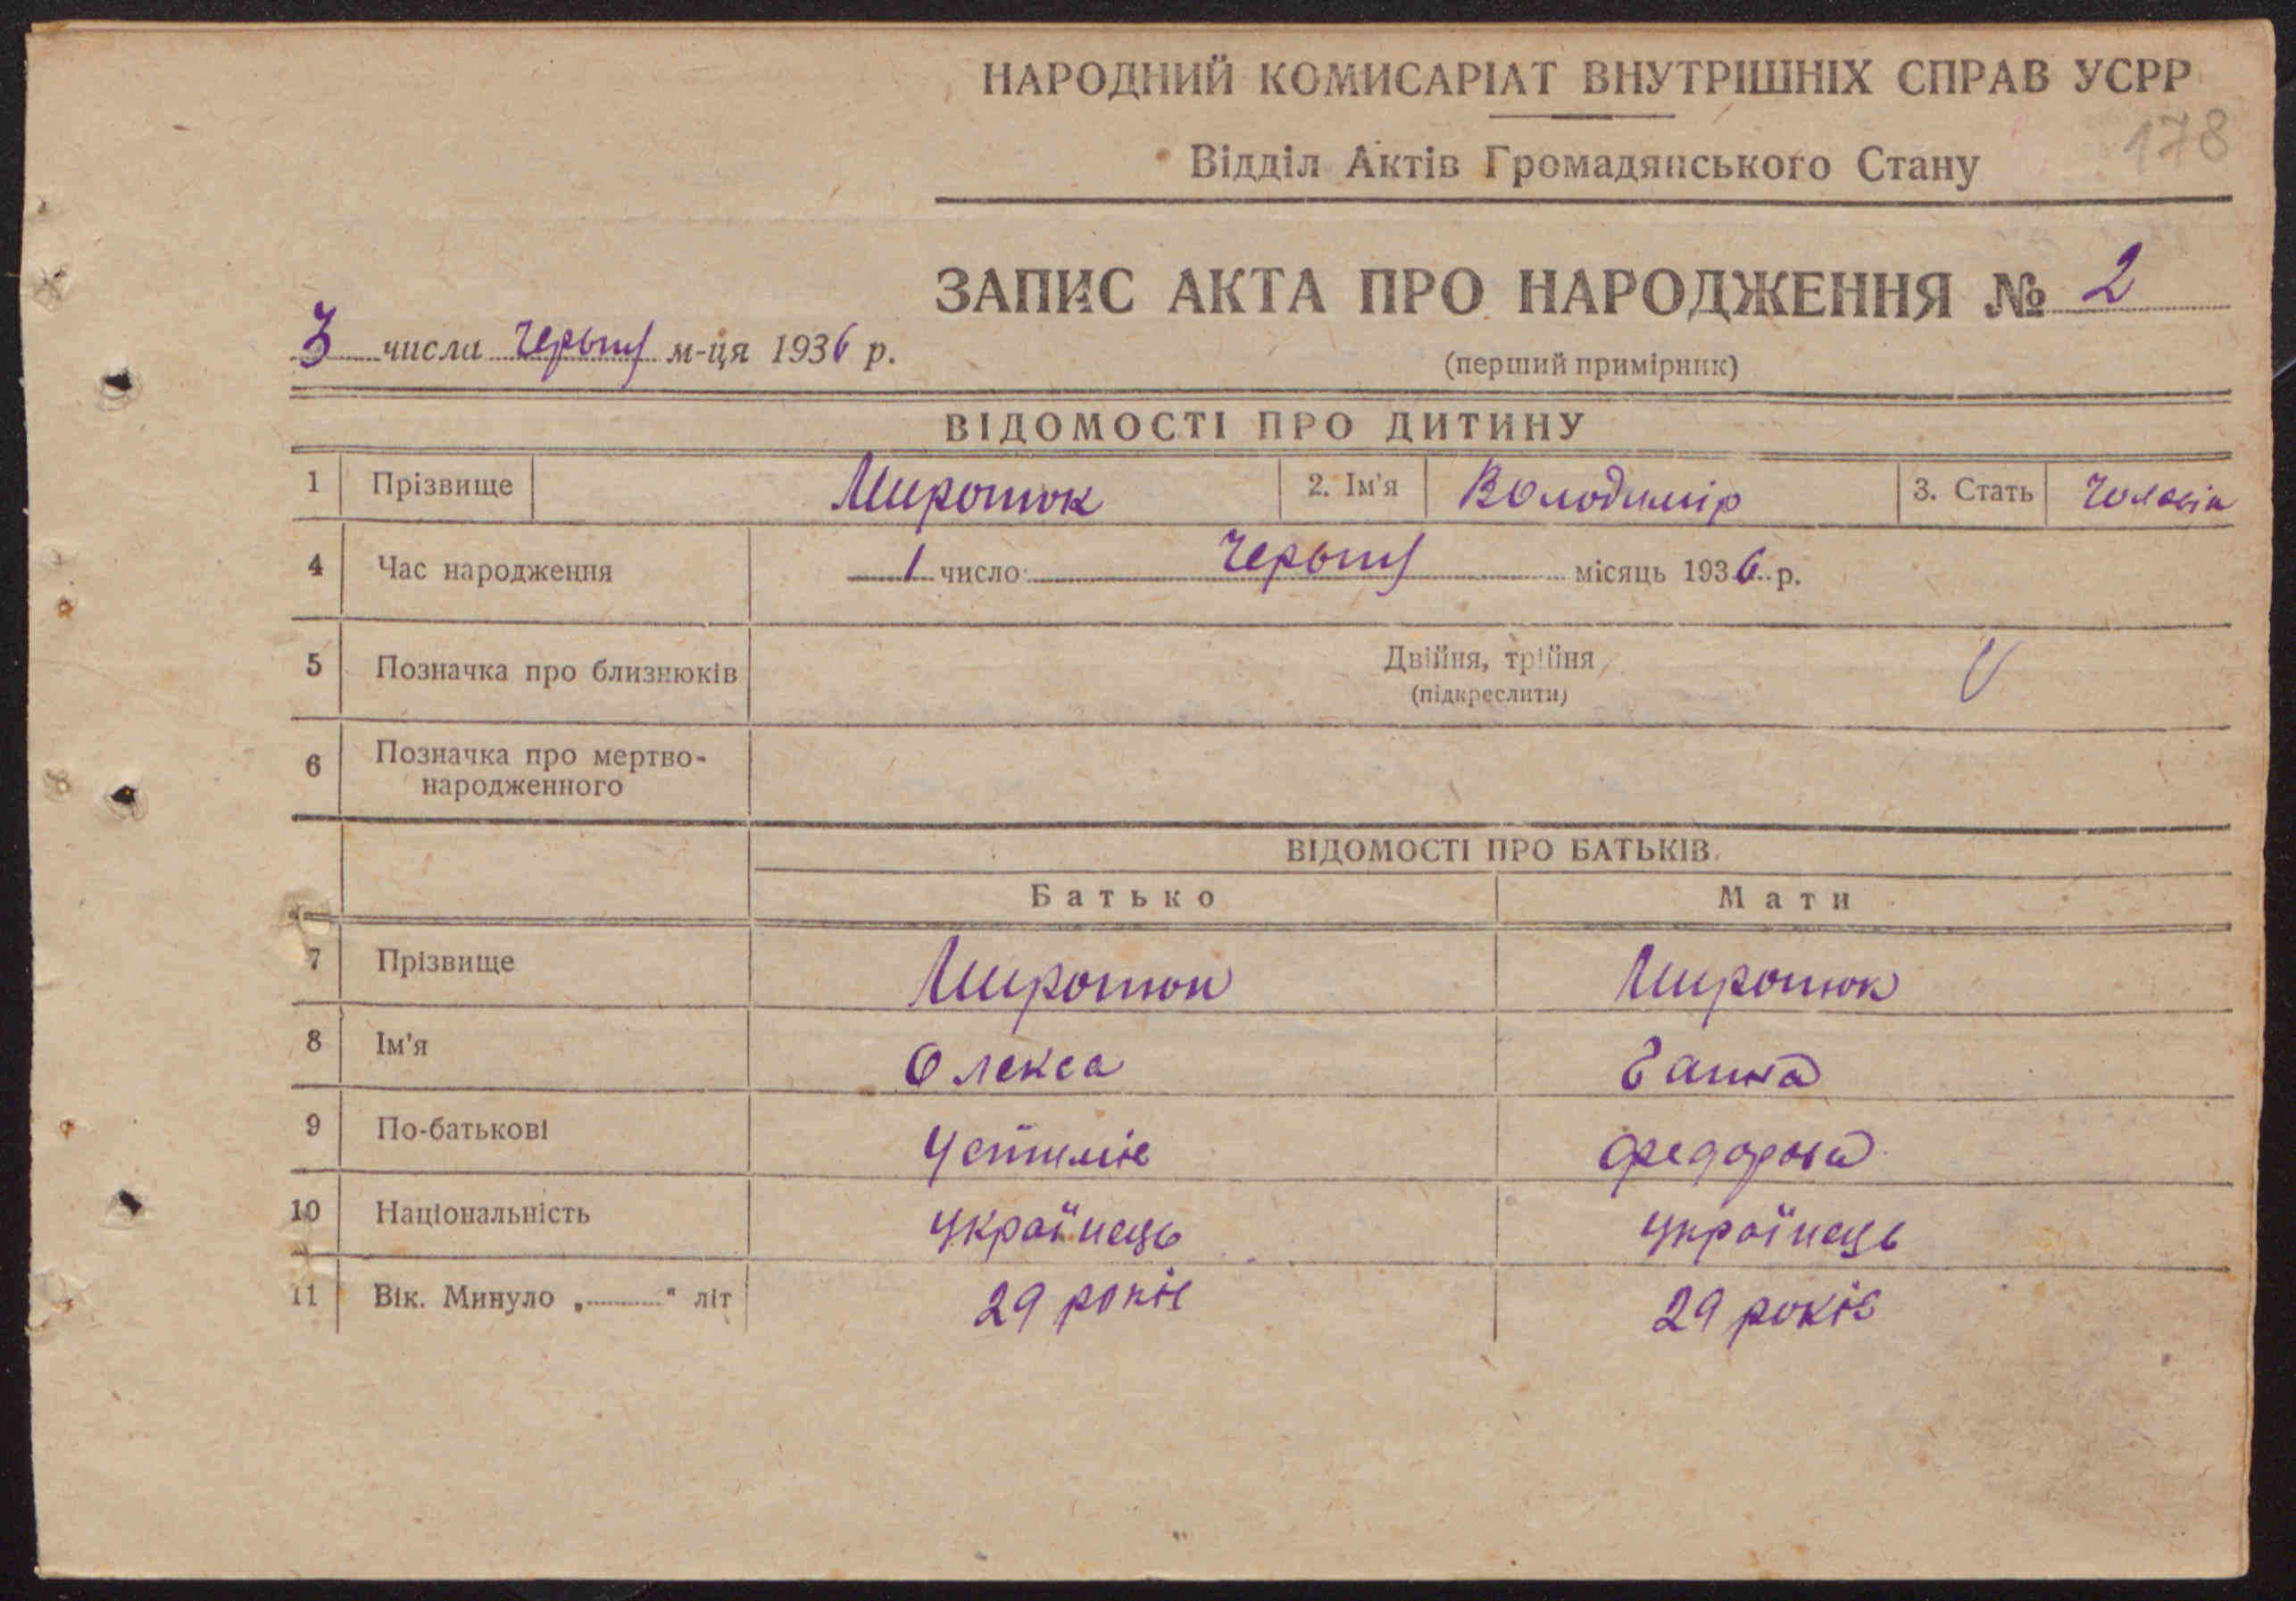 НАРОДНИЙ КОМИСАРІАТ ВНУТРІШНІХ СПРАВ УСРР
178
Відділ Актів Громадянського Стану
ЗАПИС АКТА ПРО НАРОДЖЕННЯ № 2
3 числа м-ця 1936 р.
(перший примірник)
ВІДОМОСТІ ПРО ДИТИНУ
1 Прізвище Миротюк 2. Ім'я Володимір 3. Стать Чоловік
4 Час народження 1 число місяць 1936 р.
5 Позначка про близнюків Двійня, трійня
(підкреслити)
6 Позначка про мертво-
народженного
ВІДОМОСТІ ПРО БАТЬКІВ
Батько Мати
7 Прізвище Миротюк Миротюк
8 Ім'я Олекса Ганна
9 По-батькові Устимів Федорова
10 Національність Українець Українець
11 Вік. Минуло „ " літ 29 років 29 років